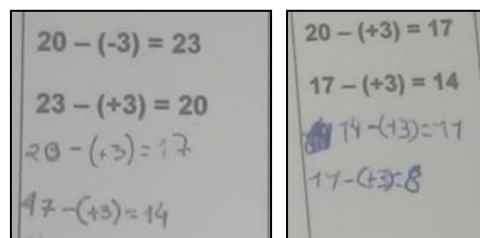 20 – (-3) = 23
23 – (+3) = 20
20 - (+3) = 17
17 - (+3) = 14
20 – (+3) = 17
17 – (+3) = 14
14 - (+3) = 11
11 - (+3) = 8